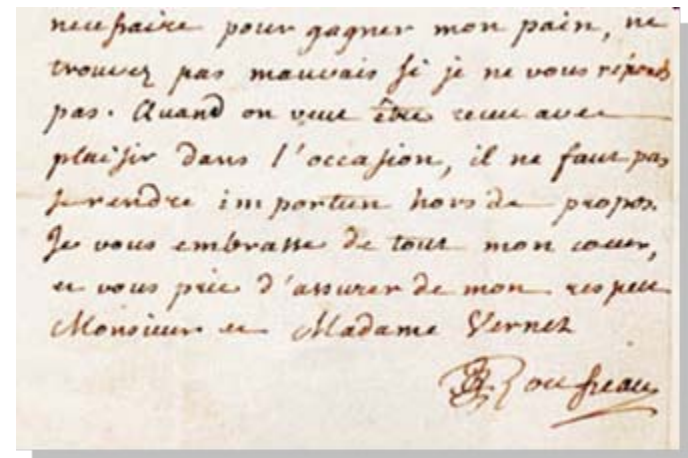 necessaire pour gagner mon pain, ne
trouvez pas mauvais si je ne vous répons
pas. Quand on veut être receu avec
plaisir dans l'occasion, il ne faut pas
se rendre importun hors de propos.
Je vous embrasse de tout mon coeur,
et vous prie d'assurer de mon respect
Monsieur et Madame Vernet
JJRousseau